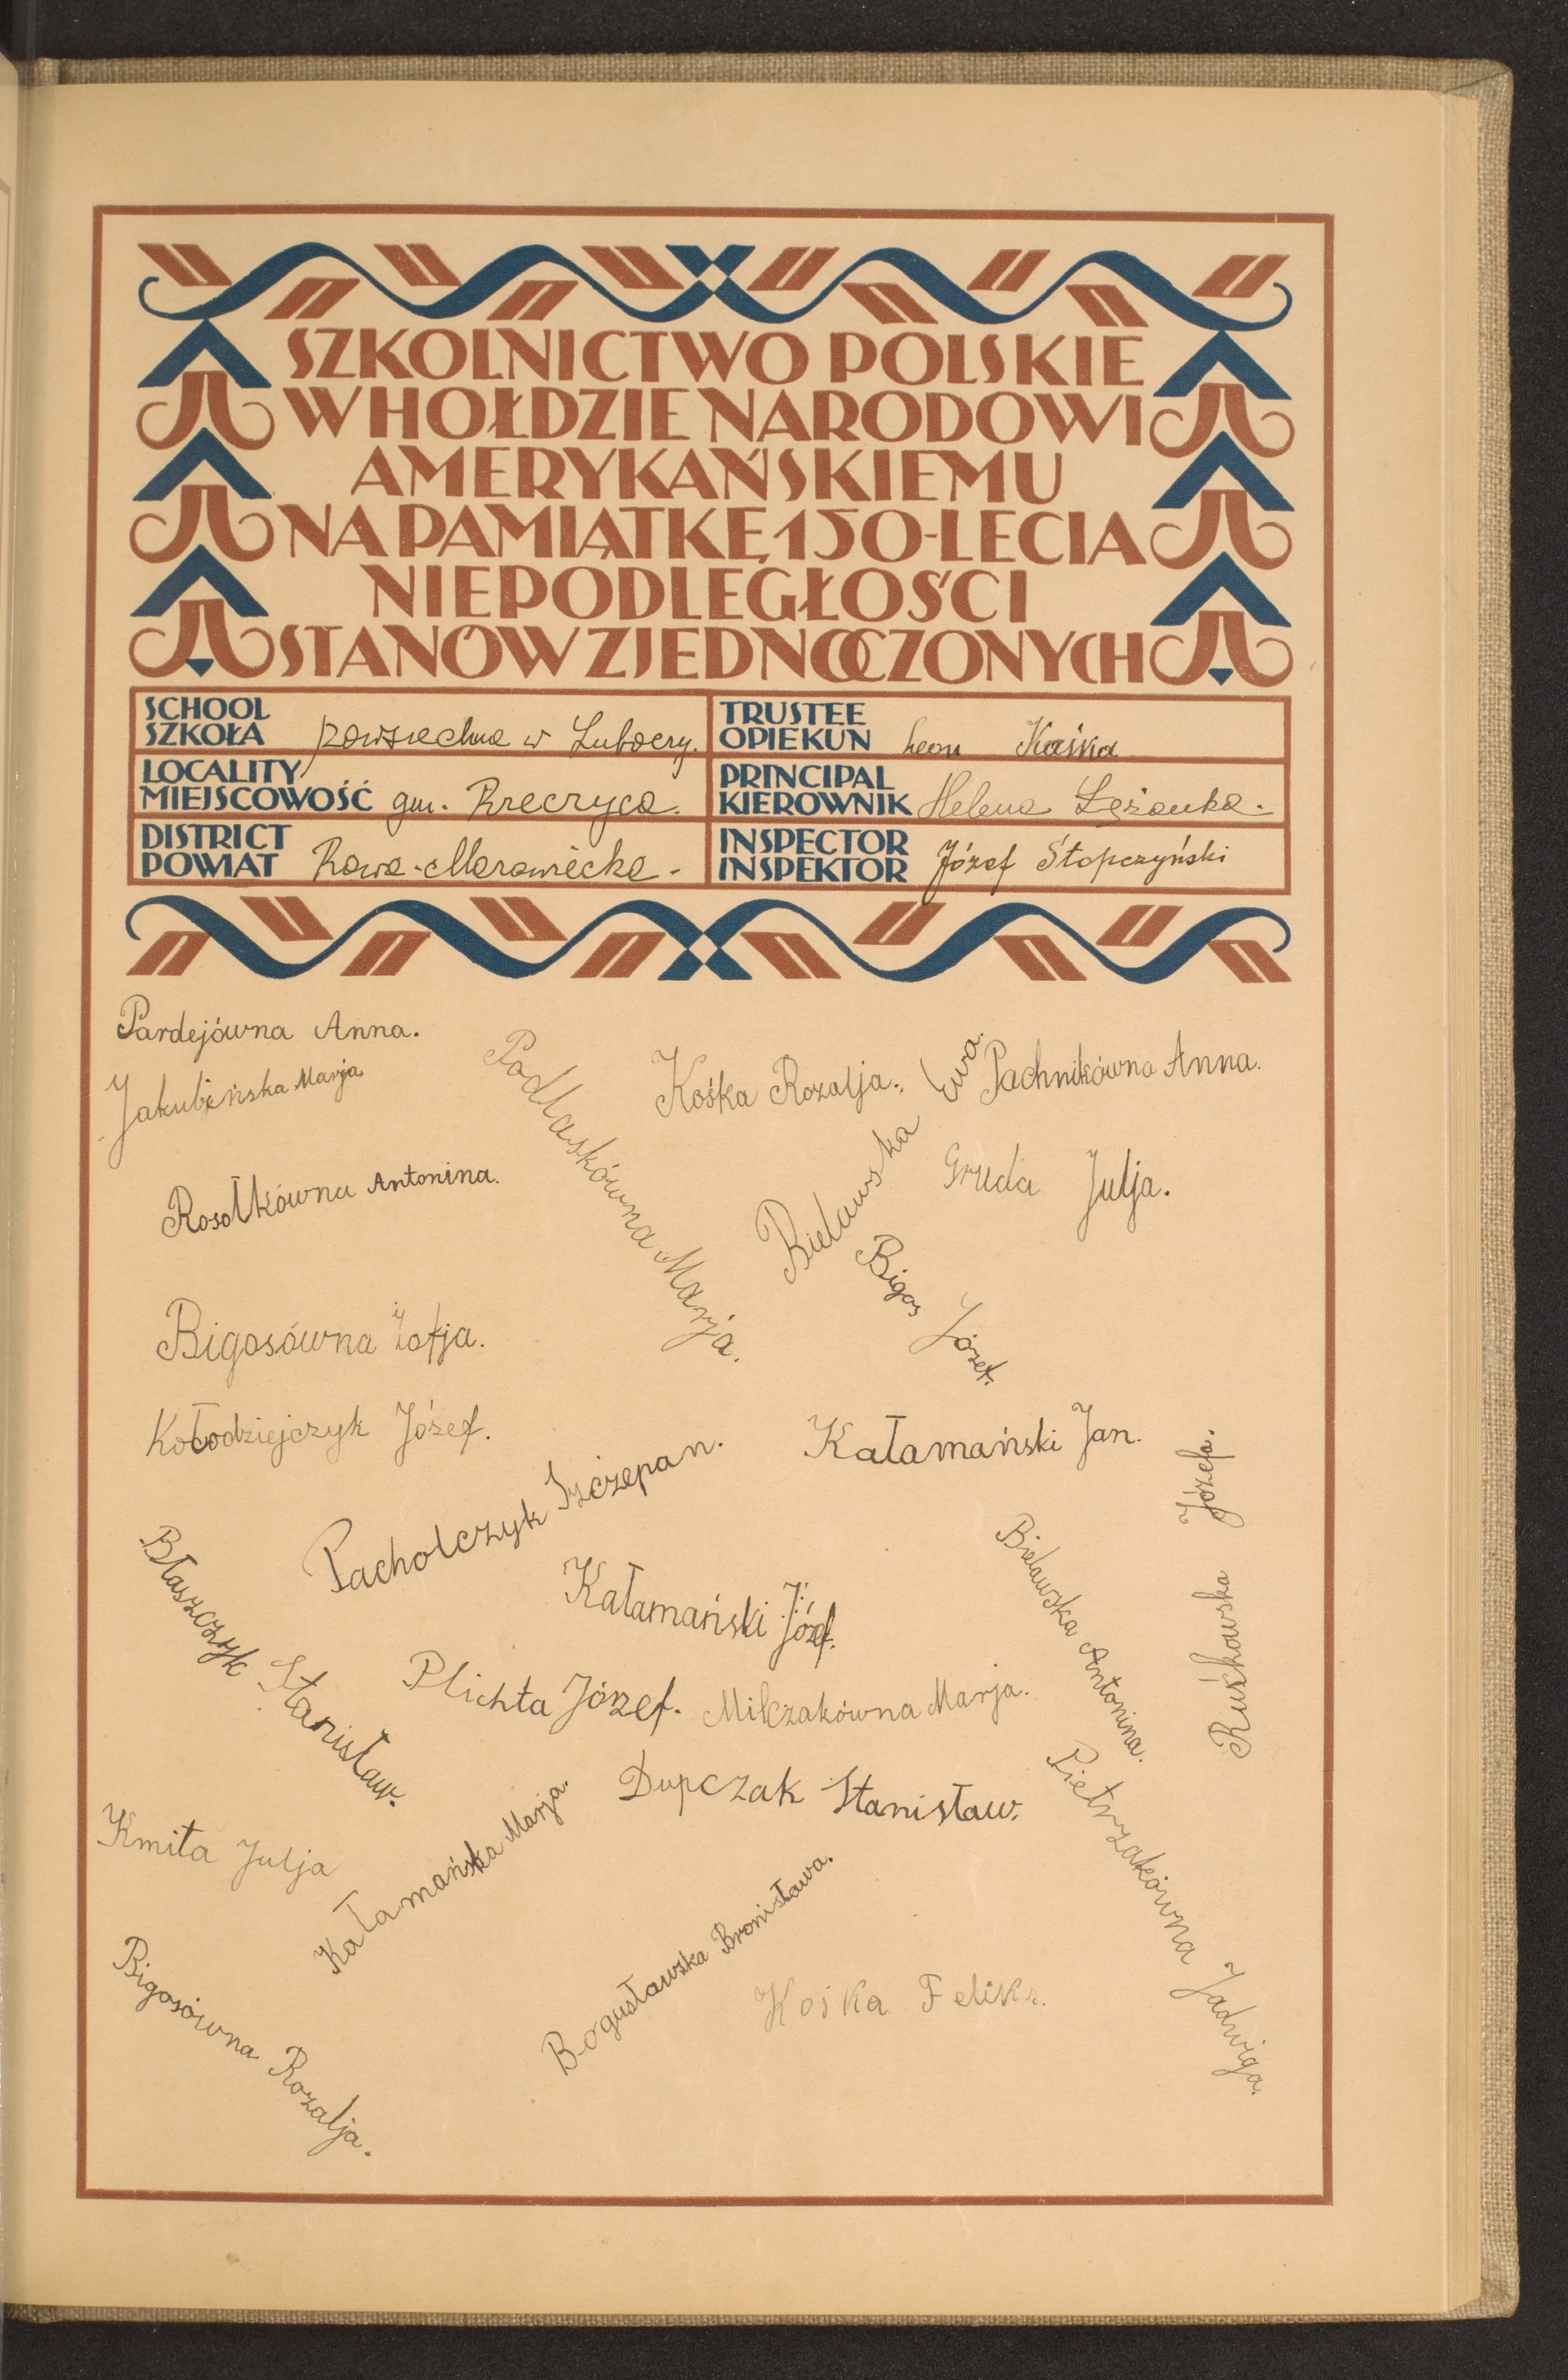 SZKOLNICTWO POLSKIE
W HOŁDZIE NARODOWI
AMERYKAŃSKIEMU
NA PAMIĄTKĘ 150-LECIA
NIEPODLEGŁOŚCI
STANÓW ZJEDNOCZONYCH
SCHOOL
SZKOŁA powszechna w Luboczy.
LOCALITY
MIEJSCOWOŚĆ gm. Rzeczyca.
DISTRICT
POWIAT Rawa-Mazowiecka-
TRUSTEE
OPIEKUN Leon Kośka
PRINCIPAL
KIEROWNIK Helena
INSPECTOR
INSPEKTOR Józef Stopczyński
Pardejówna Anna.
Jakubińska Marja
Podlaskówna Marja.
Kośka Rozalja.
Bielawska Ewa.
Pachnikówna Anna.
Gruda Julja.
Rosołkówna Antonina.
Bigos Józef.
Bigosówna Zofja.
Kołodziejczyk Józef.
Pacholczyk Szczepan.
Kałamański Jan.
Kuśkowska Józefa.
Błaszczyk Stanisław.
Kałamański Józef.
Bielawska Antonina.
Plichta Józef.
Milczakówna Marja.
Dupczak Stanisław.
Pietrzakówna Jadwiga.
Kmita Julja
Kałamańska Marja.
Bogusławska Bronisława.
Kośka Feliks.
Bigosówna Rozalja.